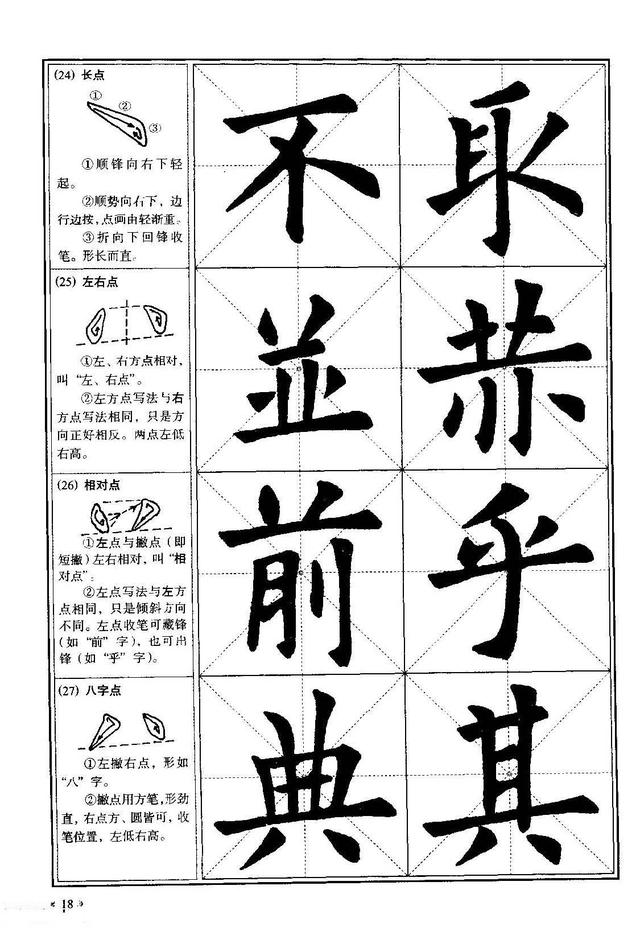 (24) 长点
① ② ③
①顺锋向右下轻
起。
②顺势向右下，边
行边按，点画由轻渐重。
③折向下回锋收
笔。形长而直。
不 取
(25) 左右点
①左、右方点相对，
叫“左、右点”。
②左方点写法与右
方点写法相同，只是方
向正好相反。两点左低
右高。
並 赤
(26) 相对点
①左点与撇点（即
短撇）左右相对，叫“相
对点”。
②左点写法与左方
点相同，只是倾斜方向
不同。左点收笔可藏锋
（如“前”字），也可出
锋（如“乎”字）。
前 乎
(27) 八字点
①左撇右点，形如
“八”字。
②撇点用方笔，形劲
直，右点方、圆皆可，收
笔位置，左低右高。
典 其
« 18 »